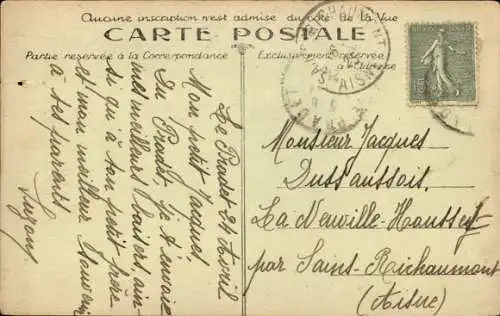 Aucune inscription n'est admise du côté de la Vue
CARTE POSTALE
Partie réservée à la Correspondance
Exclusivement réservée
à l'Adresse
Le Pradet 24 Avril
Mon petit Jacques,
Du Pradet je t'envoie
mes meilleurs baisers, ain-
si qu'à ton petit frère
et mon meilleur Souvenir
à tes parents
Suzony
Monsieur Jacques
Dussaussois.
La Neuville-Housset
par Sains-Richaumont
(Aisne)
RICHAUMONT
AISNE